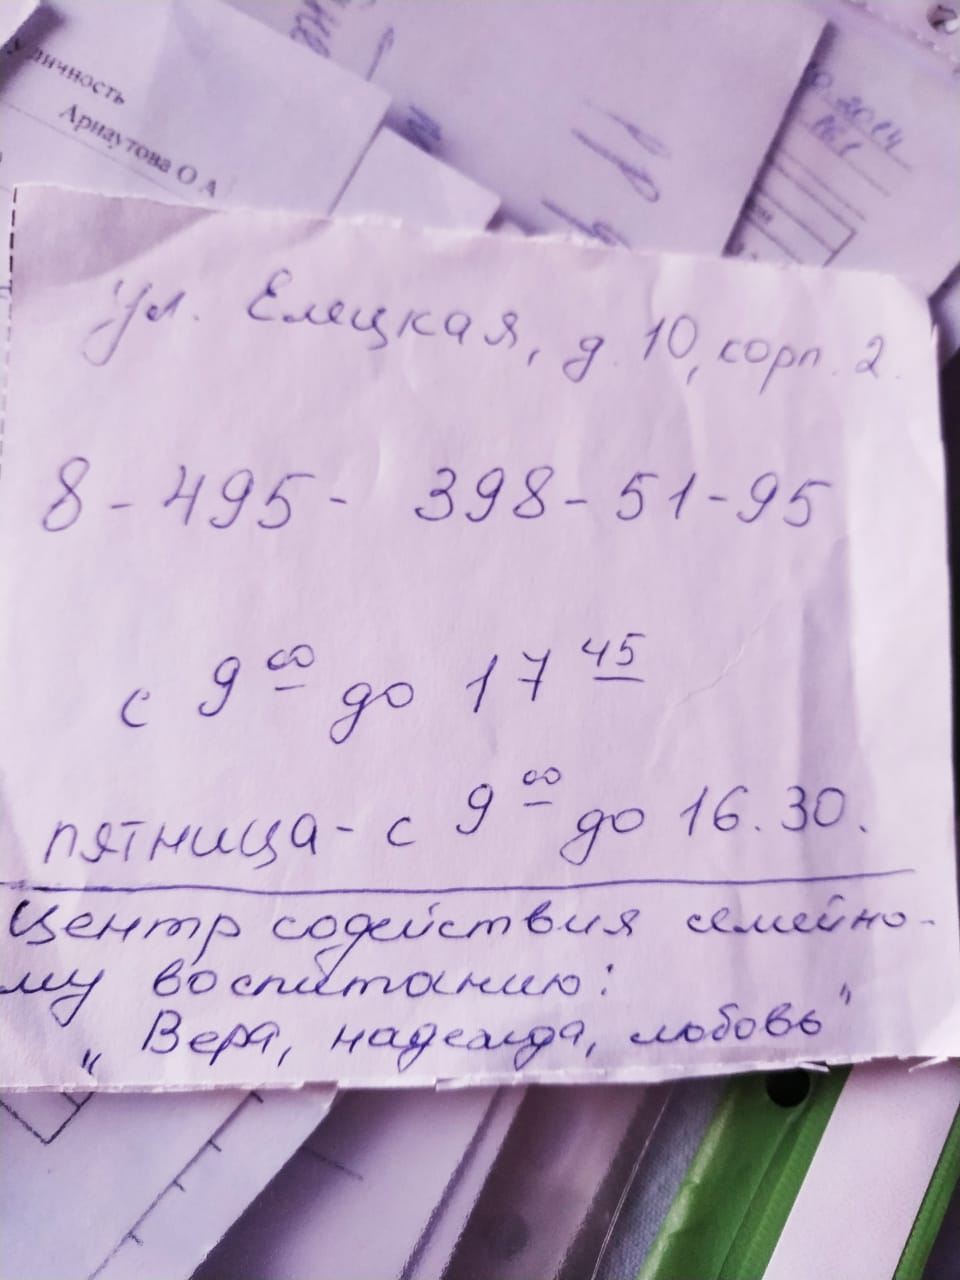 личность
Арнаутова О А
ул. Елецкая, д. 10, корп. 2.
8-495- 398-51-95
с 9 00 до 17 45
пятница - с 9 00 до 16.30.
Центр содействия семейно-
му воспитанию:
„Вера, надежда, любовь"